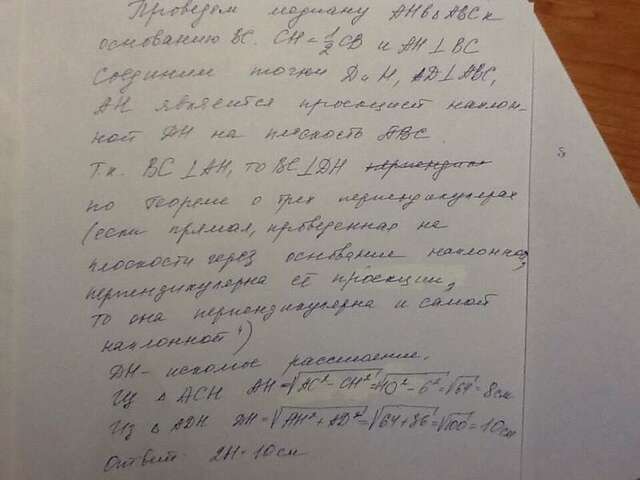 Проведем медиану AH в △ ABC к
основанию BC. CH = 1/2 CB и AH ⊥ BC
Соединим точки D и H, AD ⊥ ABC,
AH является проекцией наклон-
ной DH на плоскость ABC.
Т.к. BC ⊥ AH, то BC ⊥ DH
по теореме о трех перпендикулярах
(если прямая, проведенная на
плоскости через основание наклонной,
перпендикулярна её проекции,
то она перпендикулярна и самой
наклонной")
DH - искомое расстояние.
Из △ ACH AH = √AC² - CH² = √10² - 6² = √64 = 8 см
Из △ ADH DH = √AH² + AD² = √64 + 36 = √100 = 10 см
Ответ: DH = 10 см